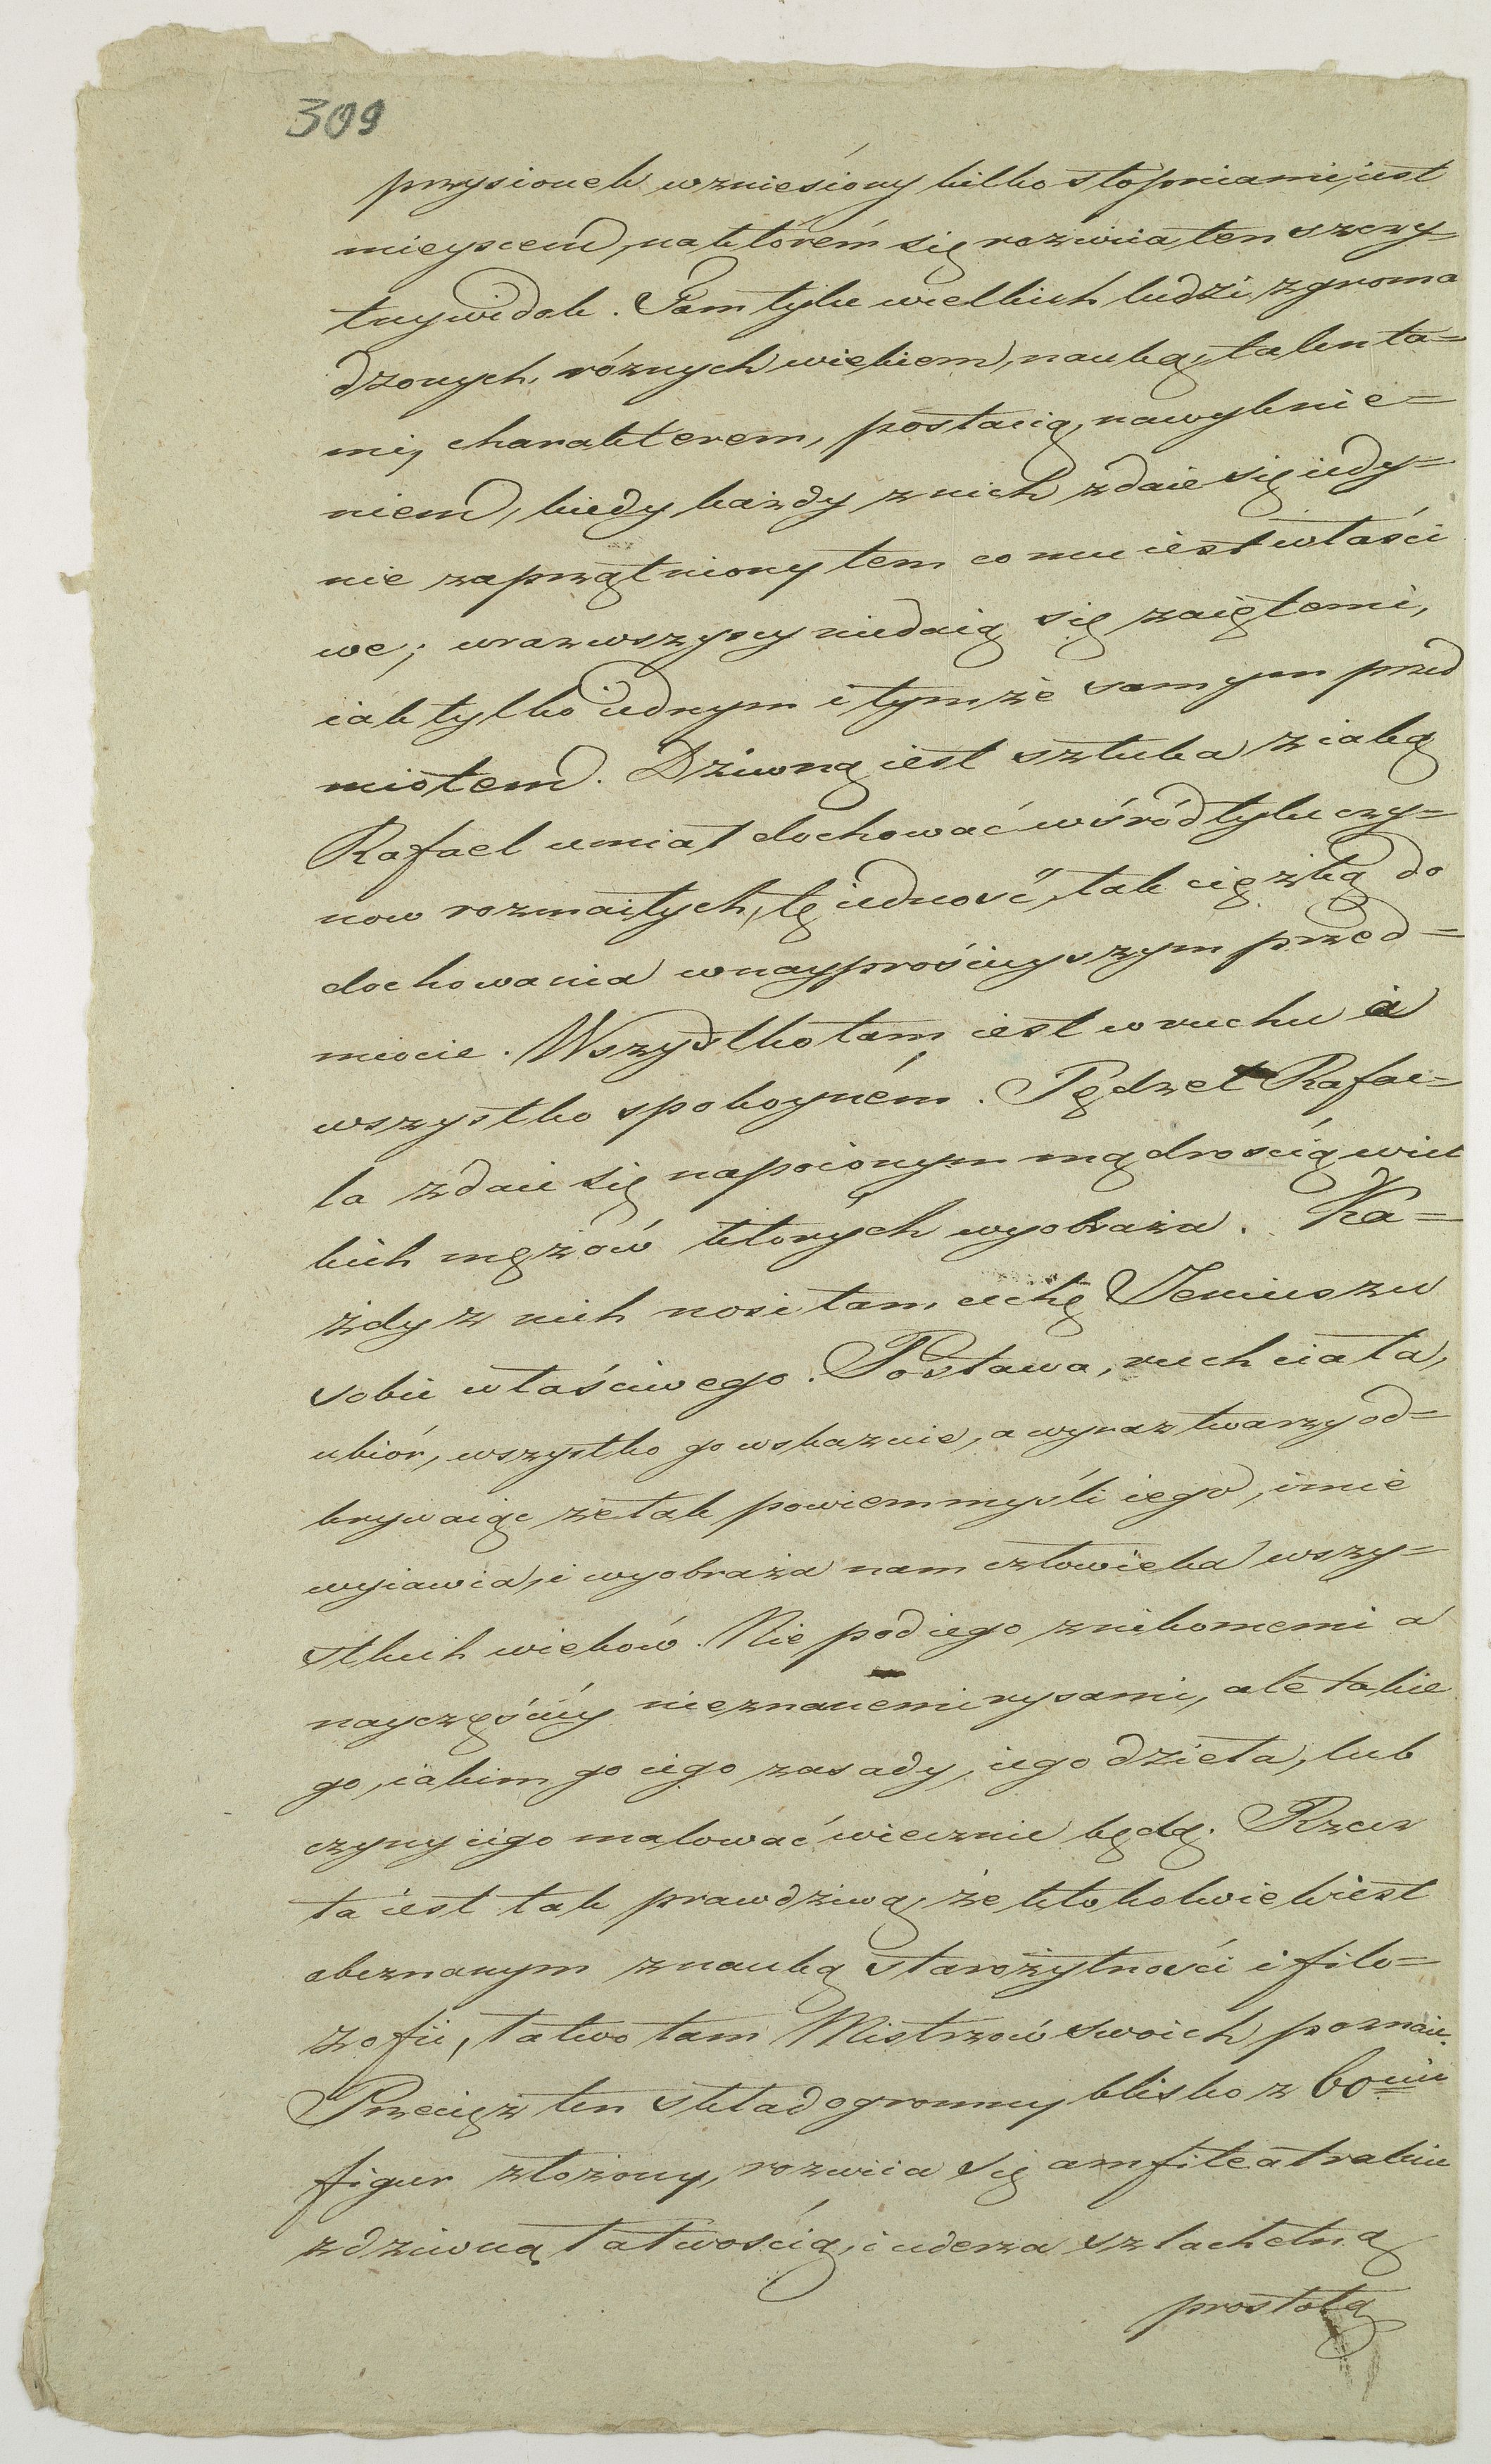 309
przysionek wzniesiony kilko stopniami, iest
mieyscem, na którém się rozwiia ten szczy=
tny widok. Tam tylu wielkich ludzi, zgroma
dzonych, różnych wiekiem, nauką, talenta=
mi, charakterem, postacią, nawyknie=
niem, kiedy każdy z nich zdaie się iedy=
nie zaprzątniony tem co mu iest właści
we; wraz wszyscy niedaią się zaiętemi,
iak tylko iednym i tymże samym przed
miotem. Dziwną iest sztuka z iaką
Rafael umiał dochować wśród tylu czy=
now rozmaitych, tę iedność, tak ciężką do
dochowania w nayprościeyszym przed=
miocie. Wszystko tam iest w ruchu a
wszystko spokoyném. Pędzel Rafae=
la zdaie się napoionym mądrością wiel
kich mężów których wyobraża. Ka=
żdy z nich nosi tam cechę Jeniuszu
sobie właściwego. Postawa, ruch ciała,
ubiór, wszystko go wskazuie, a wyraz twarzy od=
krywaiąc że tak powiem myśli iego, imie
wyiawia, i wyobraża nam człowieka wszy=
stkich wieków. Nie pod iego znikomemi a
nayczęściéy nieznanemi rysami, ale takie
go, iakim go iego zasady, iego dzieła, lub
czyny iego malować wiecznie będą. Rzecz
ta iest tak prawdziwą, że ktokolwiek iest
obeznanym z nauką starożytności i filo=
zofii, łatwo tam Mistrzów swoich poznaie.
Przecięż ten skład ogromny blisko z 60ciu
figur złożony, rozwiia się amfiteatralnie
z dziwną łatwością, i uderza szlachetną
prostotą